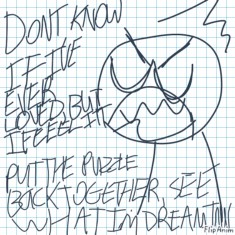 DONT KNOW
IF IVE
EVER
LOVED, BUT
I FEEL IT
PUT THE PUZZLE
BACK TOGETHER, SEE
WHAT IM DREAM
FlipAnim